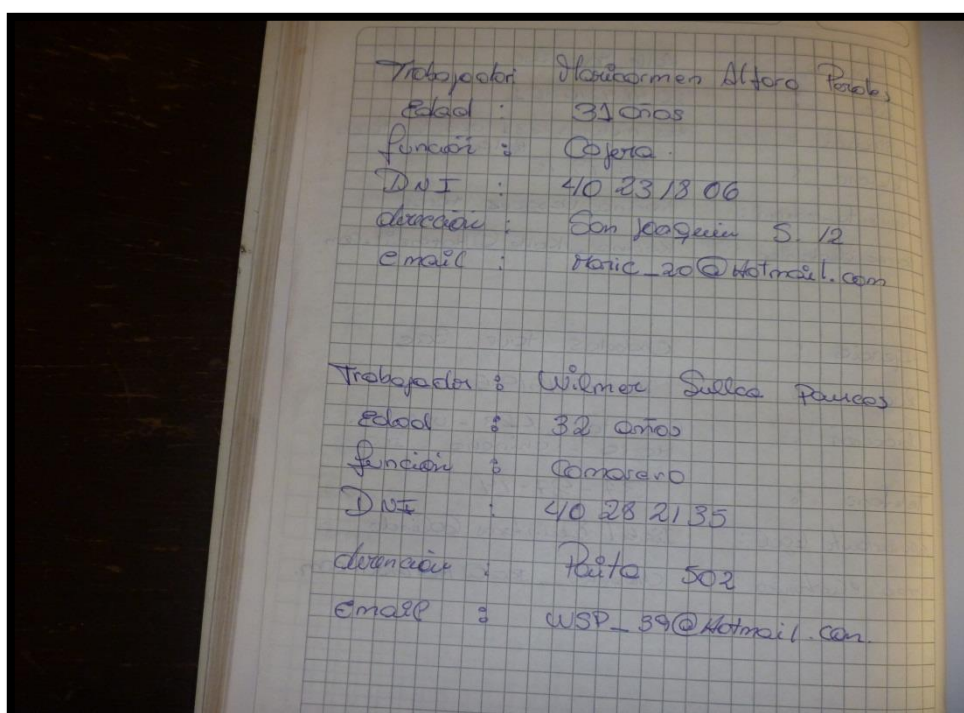 Trabajador: Maricarmen Alfaro
edad : 31 años
función : Cajera.
DNI : 40 23 18 06
dirección : San Joaquin S. 12
email : Maric_20@Hotmail.com
Trabajador : Wilmer Sullca Paucas
edad : 32 años
función : Camarero
DNI : 40 28 21 35
dirección : Paita 502
Email : WSP_39@Hotmail.com.